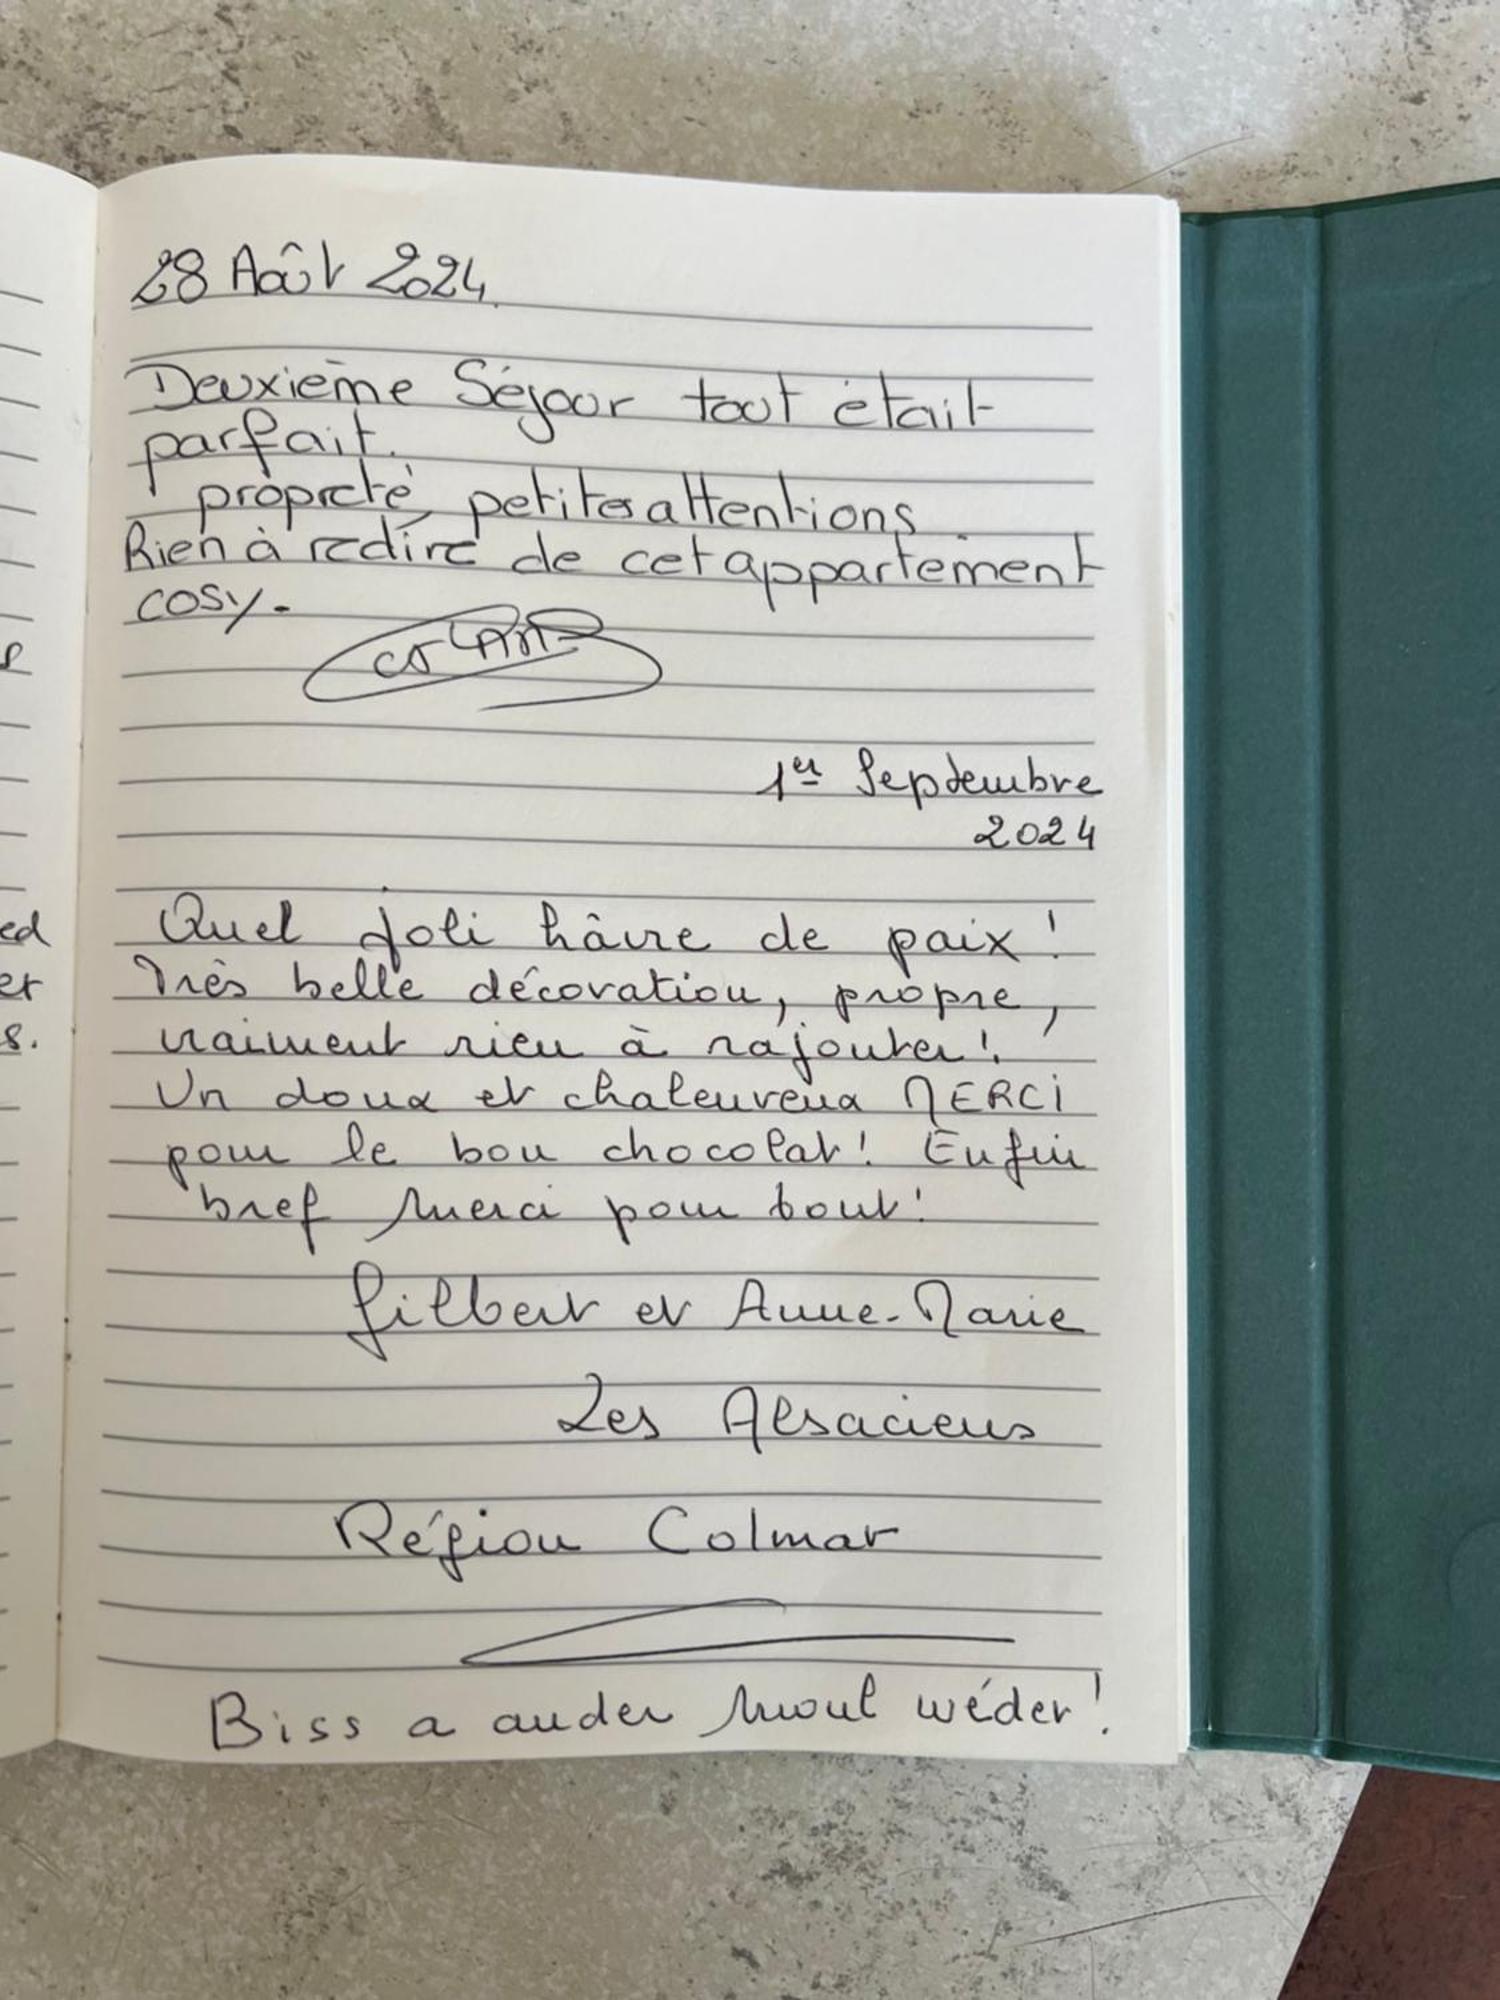 28 Août 2024.
Deuxième Séjour tout était
parfait.
propreté, petites attentions
Rien à redire de cet appartement
cosy.
1er Septembre
2024
Quel joli hâvre de paix !
Très belle décoration, propre,
vraiment rien à rajouter !
Un doux et chaleureux MERCI
pour le bon chocolat ! Enfin
bref merci pour tout !
Gilbert et Anne-Marie
Les Alsaciens
Région Colmar
Biss a ander moul wéder !
ed
er
s.